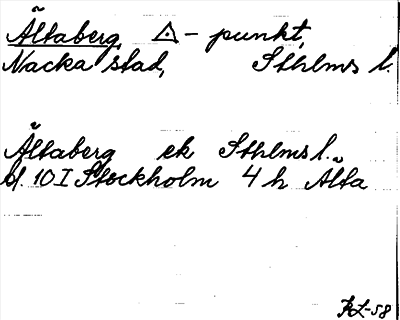 Ältaberg, △ - punkt,
Nacka stad, Sthlms l.
Ältaberg ek Sthlms l.
d. 10 I Stockholm 4 h Älta
KL-58